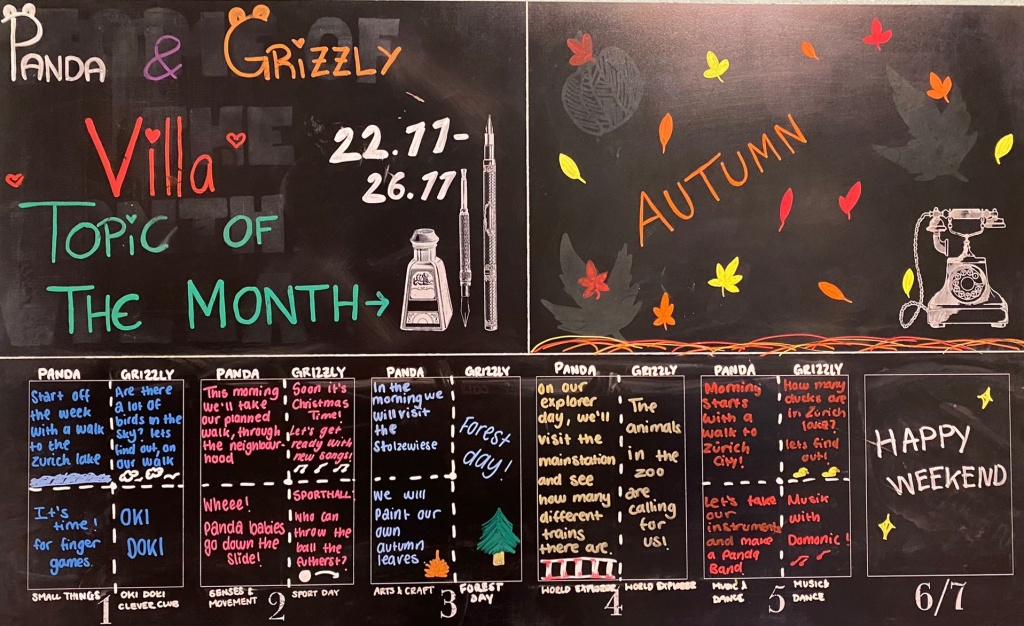 PANDA & GRIZZLY
Villa
22.11-
26.11
TOPIC OF
THE MONTH→
AUTUMN
PANDA
Start off
the week
with a walk
to the
Zürich lake
It's
time!
for finger
games.
SMALL THINGS
GRIZZLY
Are there
a lot of
birds in the
sky? lets
find out, on
our walk
OKI
DOKI
OKI DOKI
CLEVER CLUB
1
PANDA
This morning
we'll take
our planned
walk, through
the neighbour-
hood
Wheee!
Panda babies
go down the
Slide!
SENSES &
MOVEMENT
GRIZZLY
Soon it's
Christmas
Time!
Let's get
ready with
new songs!
SPORTHALL
Who can
throw the
ball the
futherst?
SPORT DAY
2
PANDA
In the
morning we
will visit
the
Stolzewiese
We will
Paint our
own
autumn
leaves
ARTS & CRAFT
GRIZZLY
Forest
day!
FOREST
DAY
3
PANDA
on our
explorer
day, we'll
visit the
mainstation
and see
how many
different
trains
there are.
WORLD EXPLORER
GRIZZLY
The
animals
in the
zoo
are
calling
for
us!
WORLD EXPLORER
4
PANDA
Morning
starts
with a
walk to
Zürich
City!
Let's take
our
instruments
and make
a Panda
Band
MUSIC &
DANCE
GRIZZLY
How many
ducks are
in Zürich
lake?
lets find
out!
Musik
with
Domonic!
MUSIC &
DANCE
5
HAPPY
WEEKEND
6/7